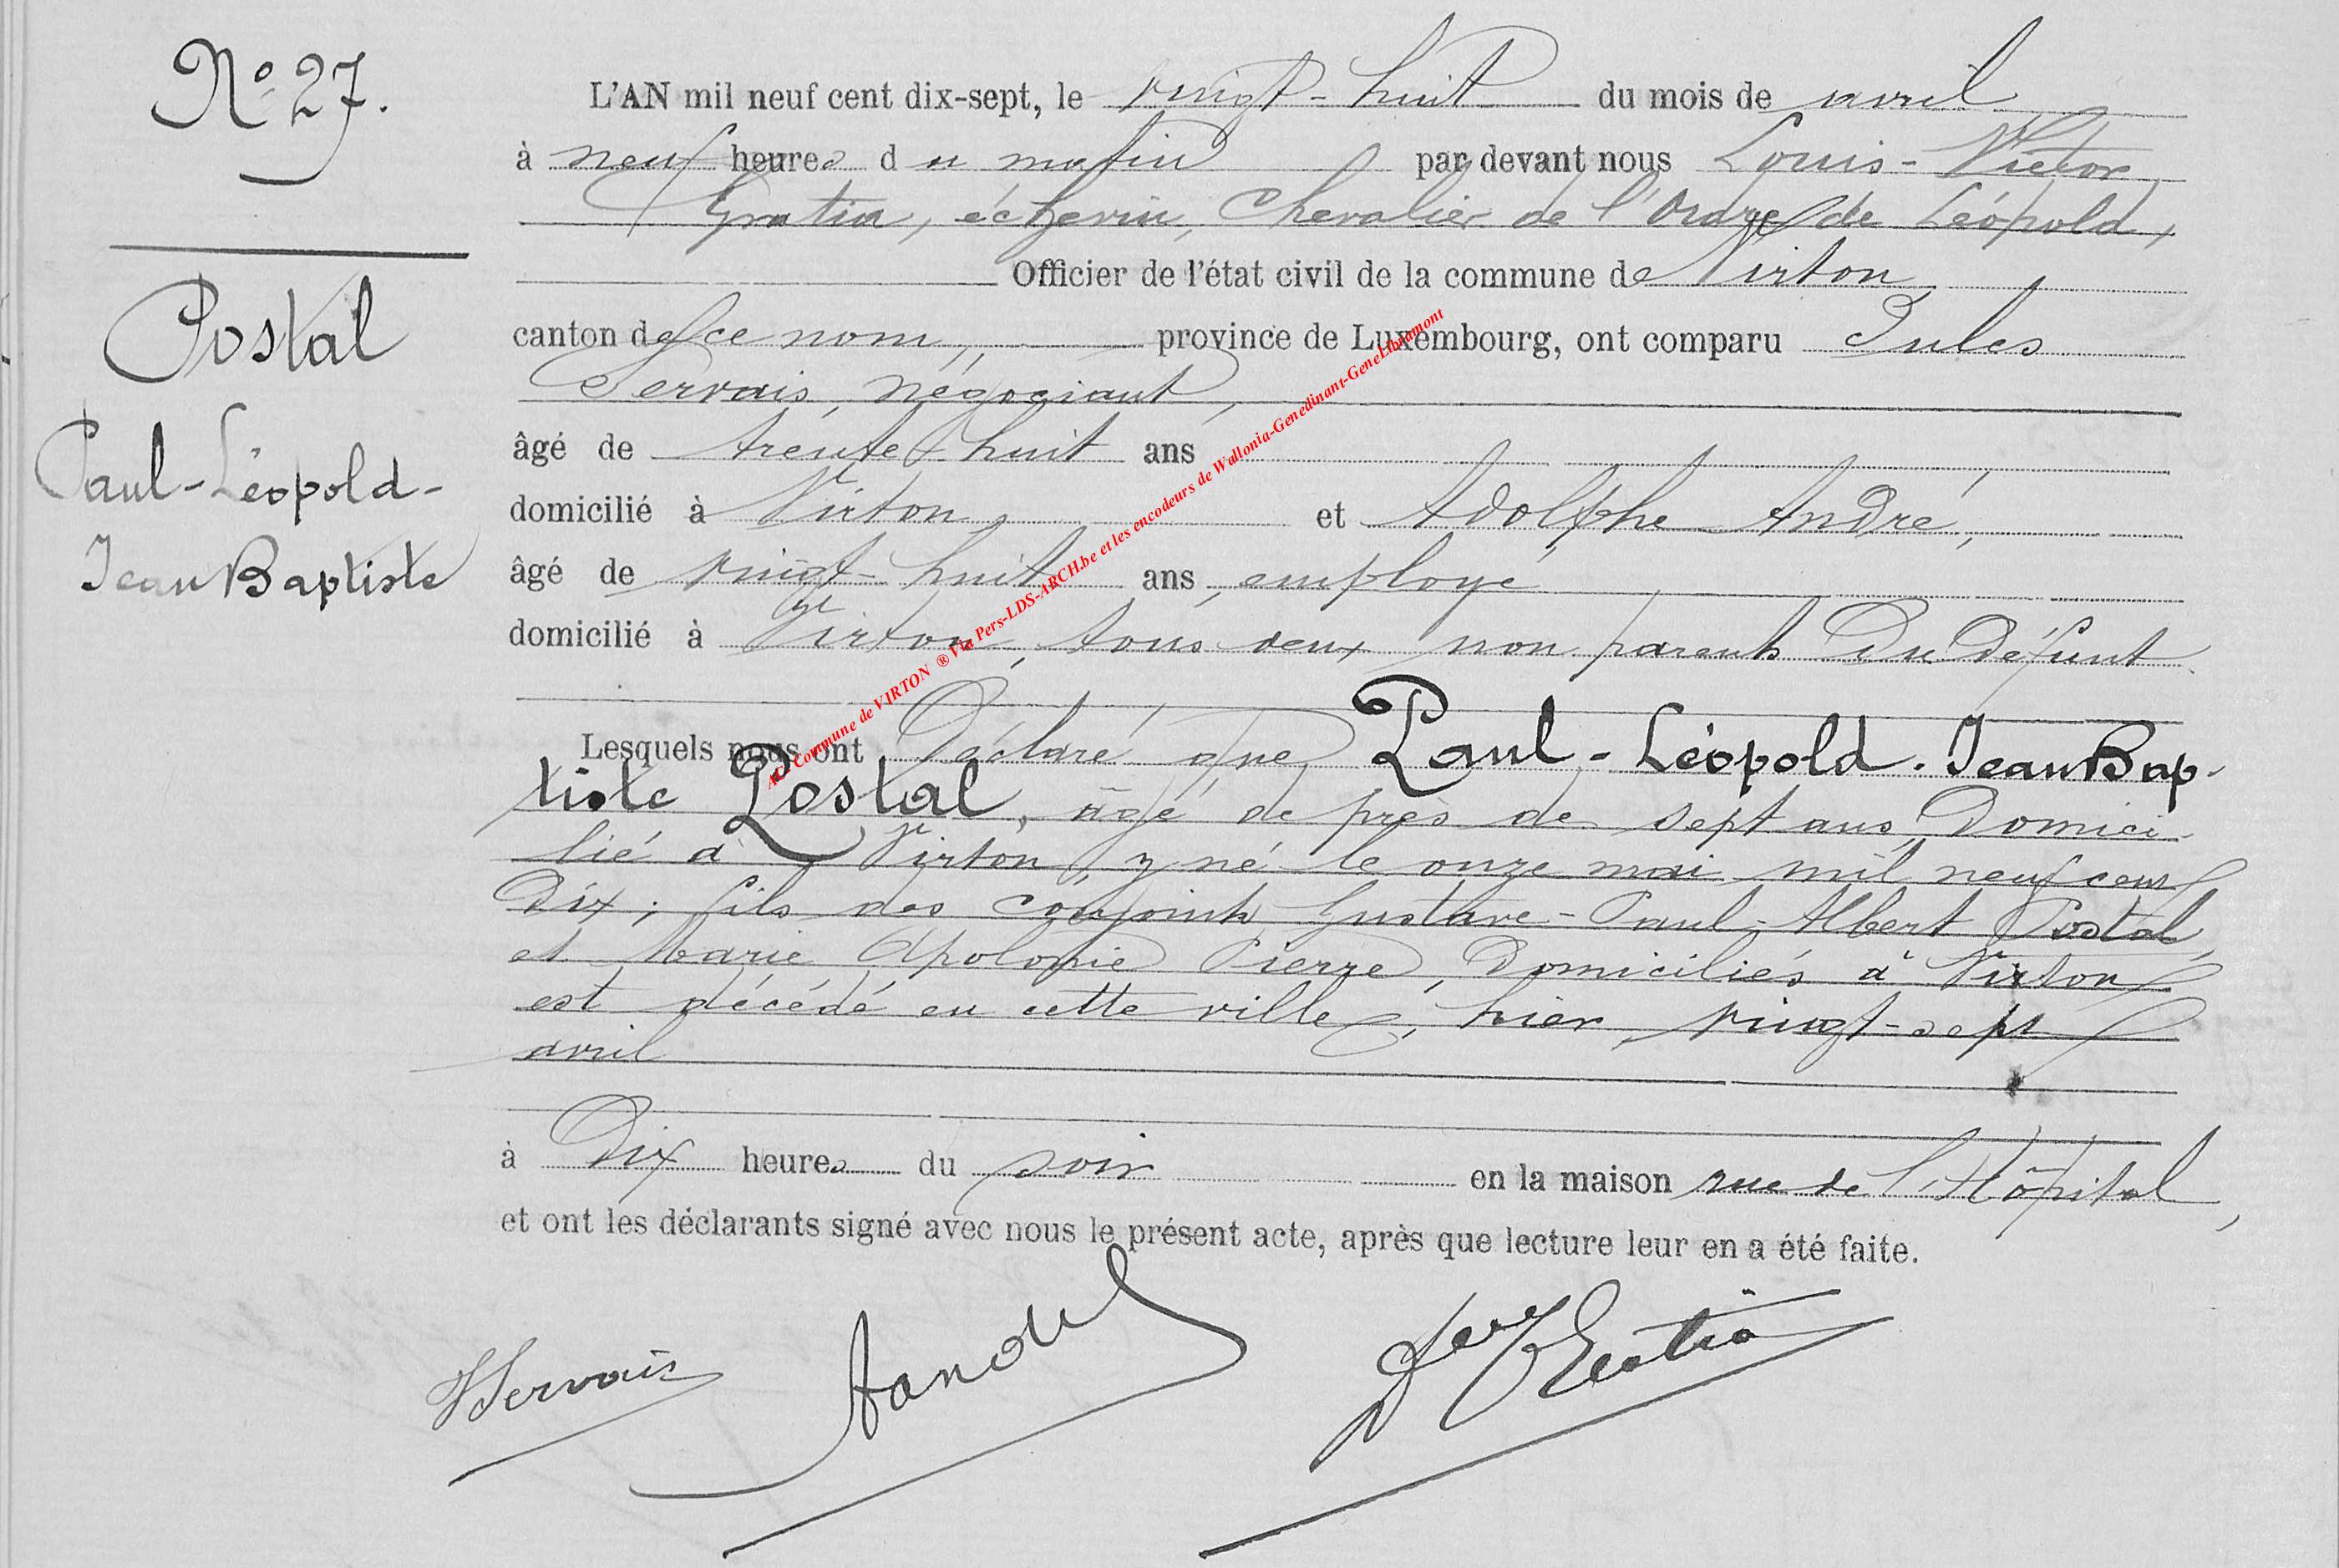 N° 27.
Postal
Paul-Léopold-
Jean Baptiste
L'AN mil neuf cent dix-sept, le vingt-huit du mois de avril
à neuf heures du matin par devant nous Louis-Victor
Gratia, échevin, Chevalier de l'Ordre de Léopold,
Officier de l'état civil de la commune de Virton,
canton de ce nom, province de Luxembourg, ont comparu Jules
Servais, négociant,
âgé de trente-huit ans
domicilié à Virton et Adolphe André,
âgé de vingt-huit ans, employé
domicilié à Virton, tous deux non parents du défunt
Lesquels nous ont déclaré que Paul-Léopold-Jean Bap-
tiste Postal, âgé de près de sept ans, domici-
lié à Virton, y né le onze mai mil neuf cent
dix; fils des conjoints Gustave-Paul-Albert Postal
et Marie Apolonie Pierre, domiciliés à Virton
est décédé en cette ville, hier, vingt-sept
avril
à dix heures du soir en la maison rue de l'Hôpital,
et ont les déclarants signé avec nous le présent acte, après que lecture leur en a été faite.
JServais AAndré Gratia
Commune de VIRTON ® Via Pers-LDS-ARCH.be et les encodeurs de Wallonia-Genedinant-GeneLibramont